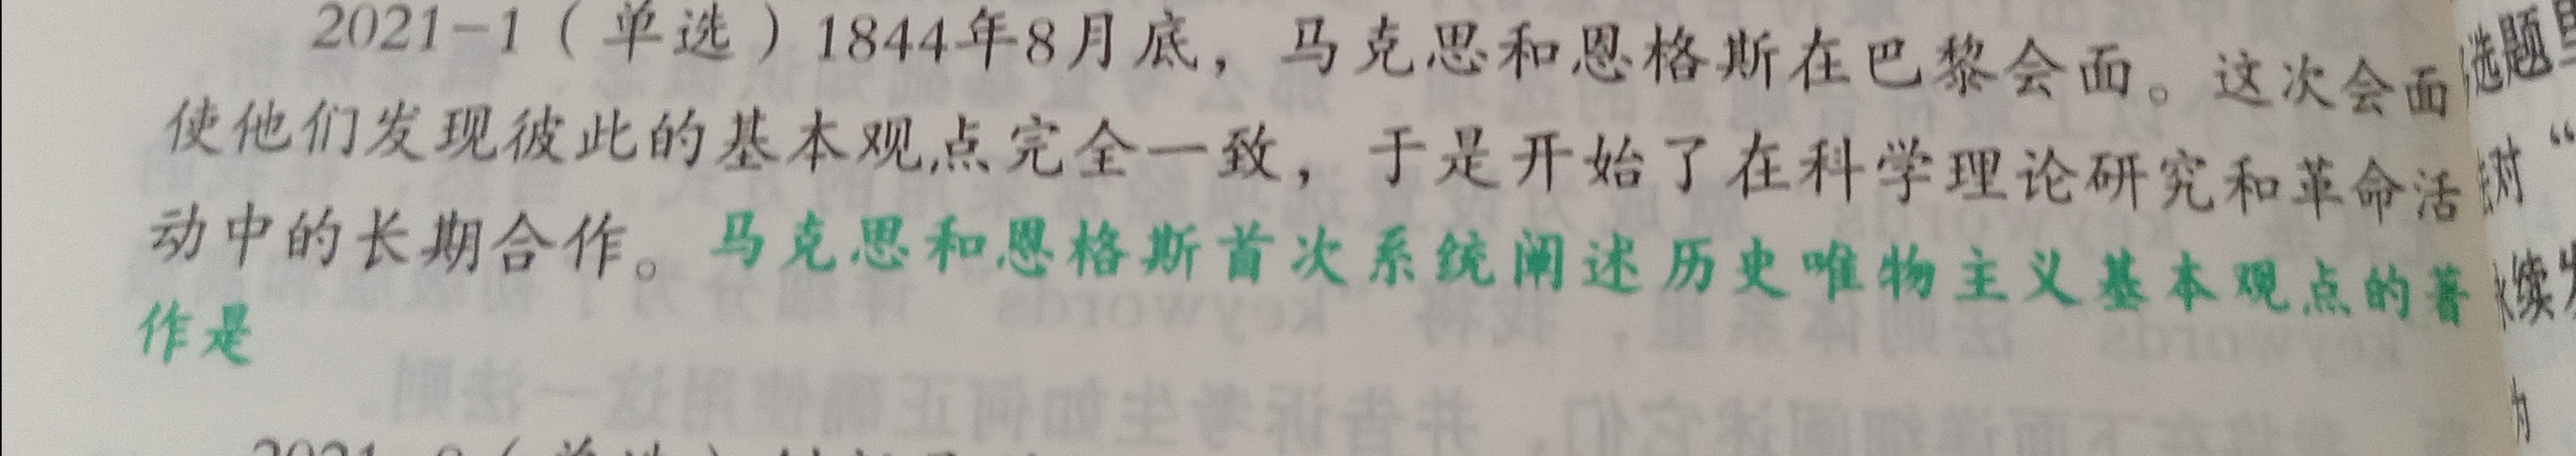 2021-1（单选）1844年8月底，马克思和恩格斯在巴黎会面。这次会面
使他们发现彼此的基本观点完全一致，于是开始了在科学理论研究和革命活
动中的长期合作。马克思和恩格斯首次系统阐述历史唯物主义基本观点的著
作是
选题
对“
续发
为